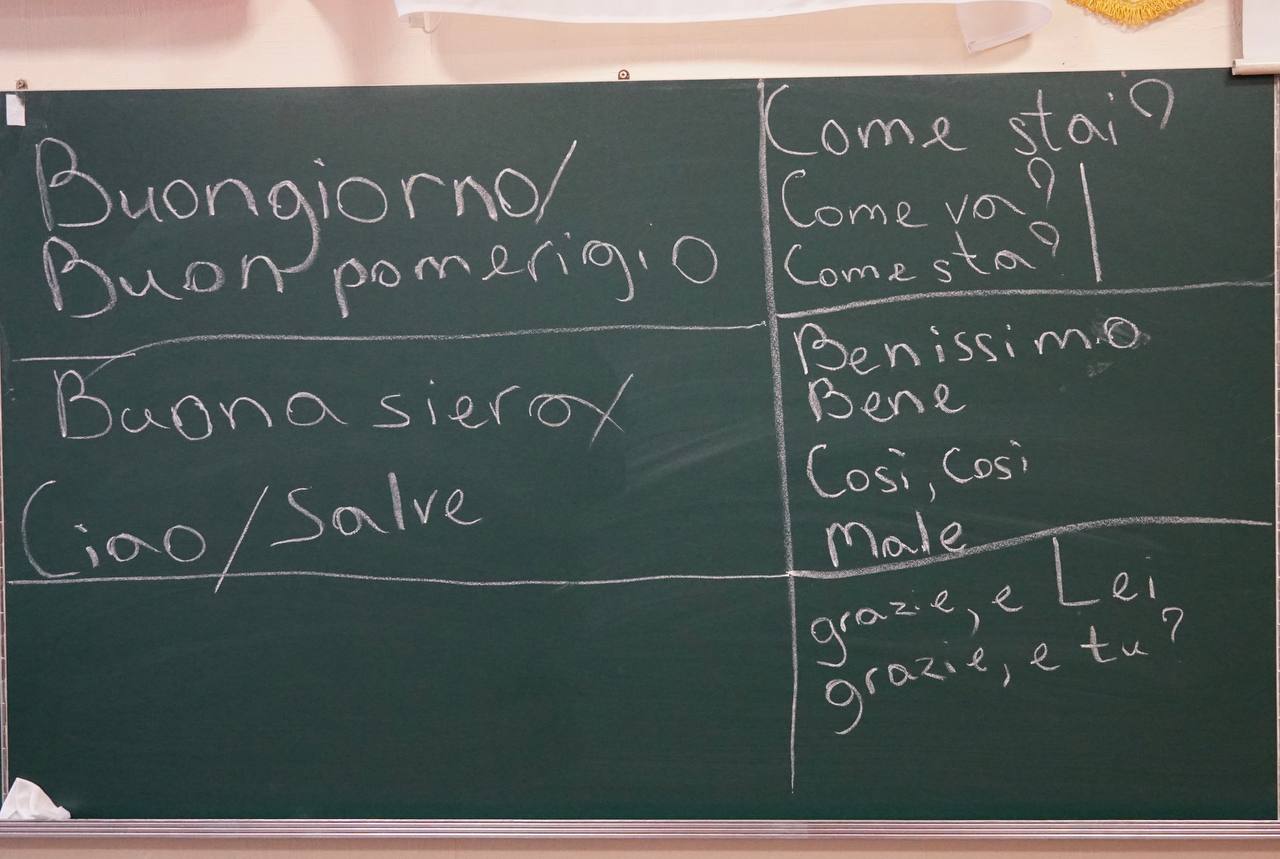 Buongiorno/
Buon pomerigio
Buona siera/
Ciao/Salve
Come stai?
Come va?
Come sta?
Benissimo
Bene
Così, Così
Male
grazie, e Lei
grazie, e tu?